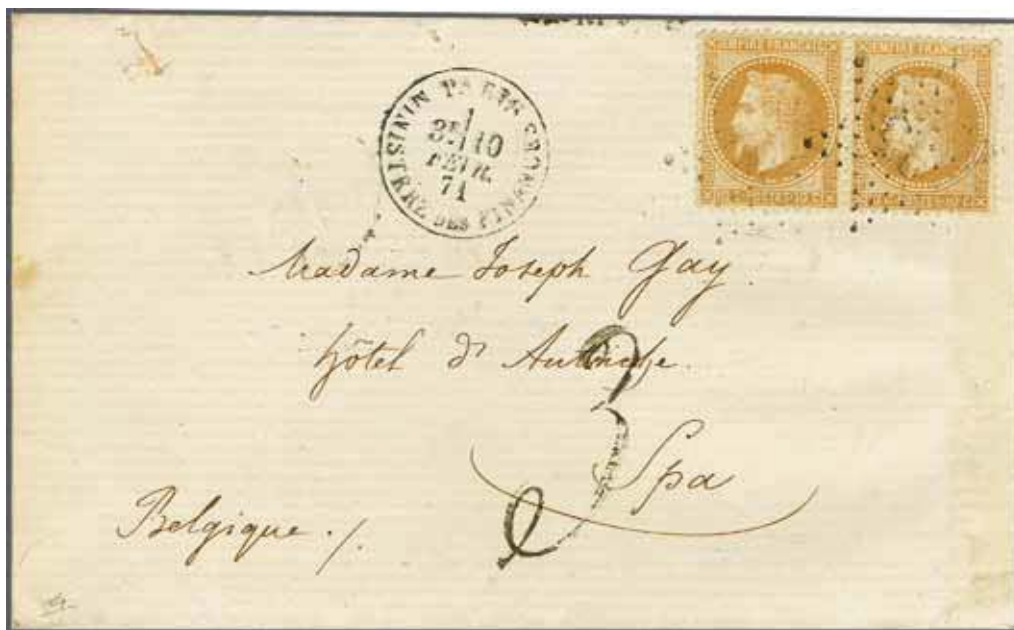 EMPIRE FRANÇAIS
EMPIRE FRANÇAIS
PARIS
MINISTÈRE DES FINANCES
3E 10
FEVR.
71
Madame Joseph Gay
Hôtel d'Autriche
3
Spa
Belgique ./.